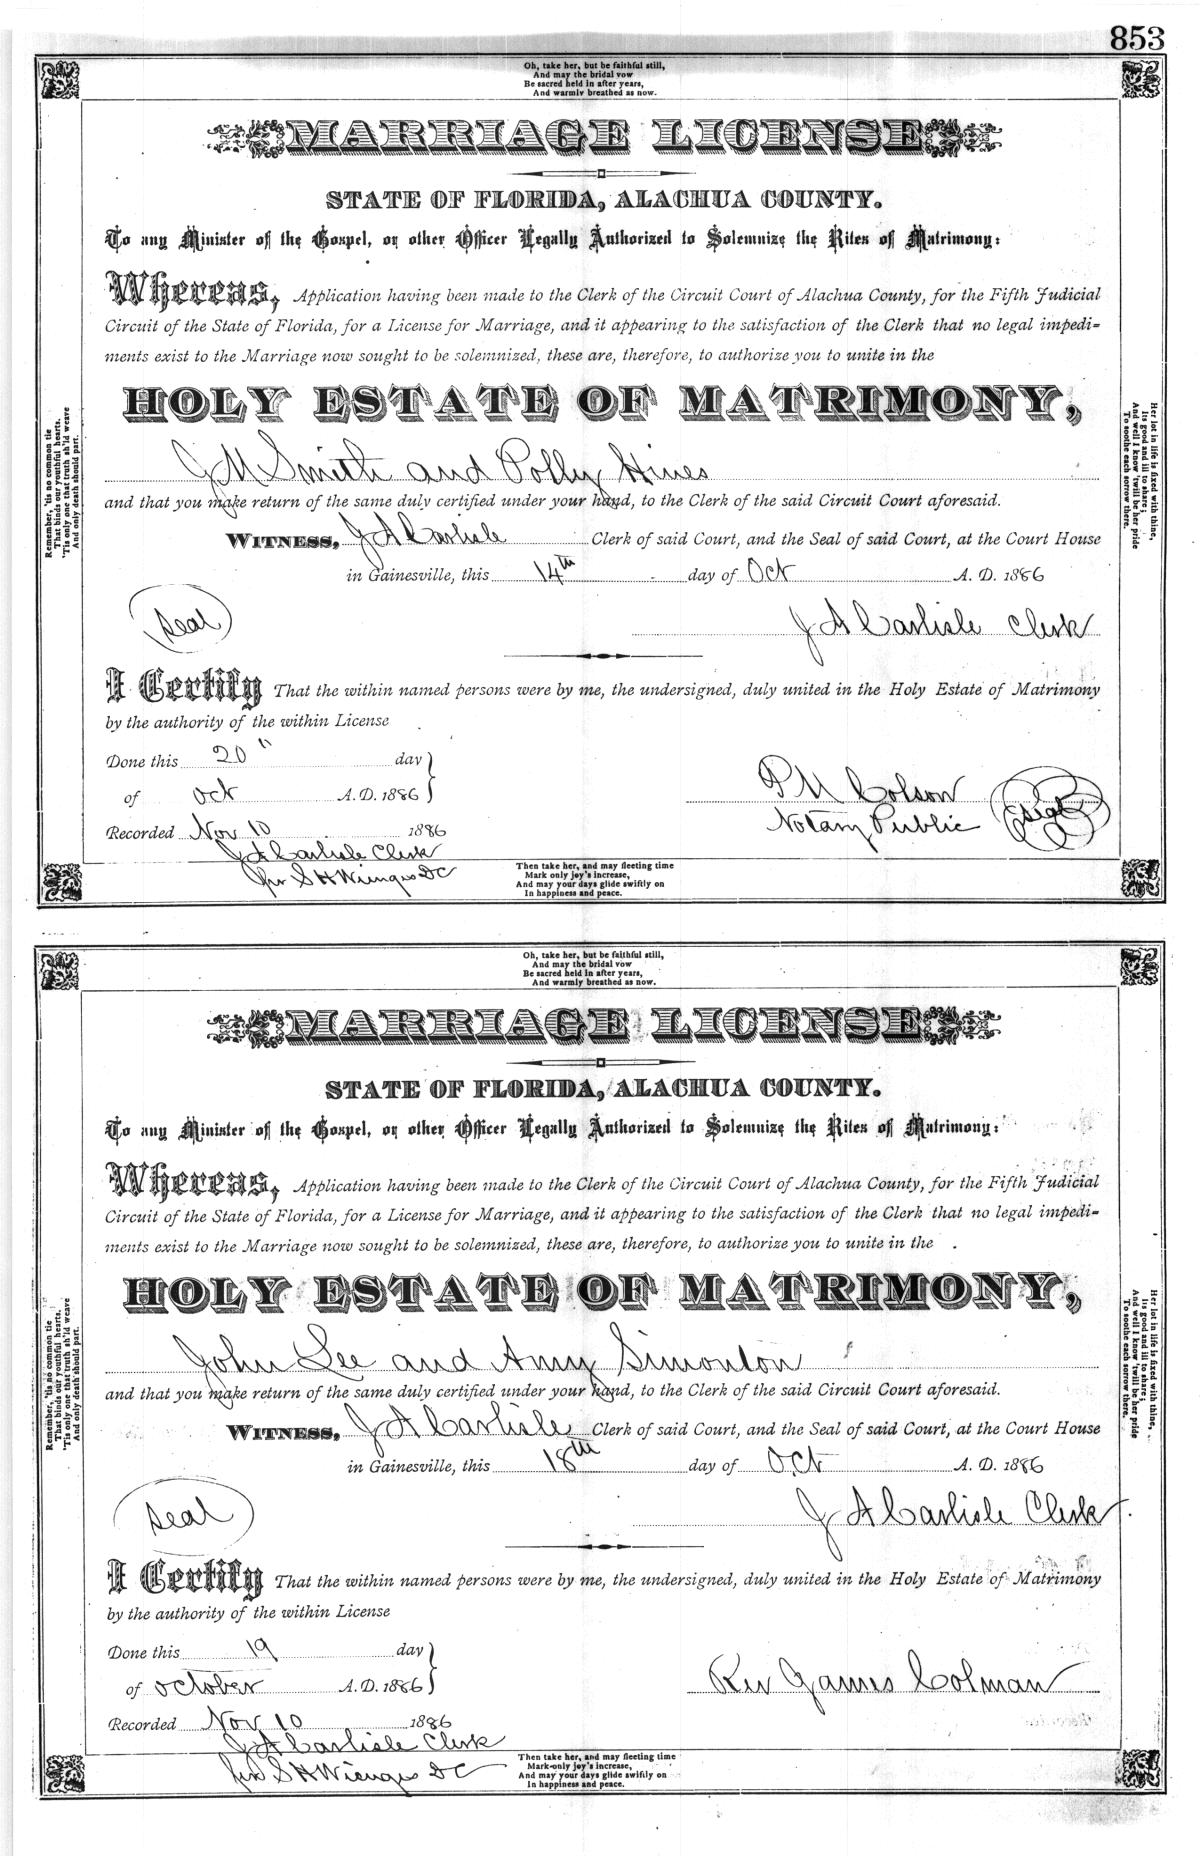 853
Oh, take her, but be faithful still,
And may the bridal vow
Be sacred held in after years,
And warmly breathed as now.
MARRIAGE LICENSE
STATE OF FLORIDA, ALACHUA COUNTY.
To any Minister of the Gospel, or other Officer Legally Authorized to Solemnize the Rites of Matrimony:
Whereas, Application having been made to the Clerk of the Circuit Court of Alachua County, for the Fifth Judicial
Circuit of the State of Florida, for a License for Marriage, and it appearing to the satisfaction of the Clerk that no legal impedi-
ments exist to the Marriage now sought to be solemnized, these are, therefore, to authorize you to unite in the
HOLY ESTATE OF MATRIMONY,
J M Smith and Polly Hines
and that you make return of the same duly certified under your hand, to the Clerk of the said Circuit Court aforesaid.
WITNESS, J A Carlisle Clerk of said Court, and the Seal of said Court, at the Court House
in Gainesville, this 14th day of Oct A. D. 1886
J A Carlisle Clerk
Seal
I Certify That the within named persons were by me, the undersigned, duly united in the Holy Estate of Matrimony
by the authority of the within License
Done this 20" day
of Oct A. D. 1886
P M Colson
Notary Public
Seal
Recorded Nov 10 1886
J A Carlisle Clerk
per S H Wienges DC
Remember, 'tis no common tie
That binds our youthful hearts,
'Tis only one that truth sh'ld weave
And only death should part.
Her lot in life is fixed with thine,
Its good and ill to share;
And well I know 'twill be her pride
To soothe each sorrow there.
Then take her, and may fleeting time
Mark only joy's increase,
And may your days glide swiftly on
In happiness and peace.
Oh, take her, but be faithful still,
And may the bridal vow
Be sacred held in after years,
And warmly breathed as now.
MARRIAGE LICENSE
STATE OF FLORIDA, ALACHUA COUNTY.
To any Minister of the Gospel, or other Officer Legally Authorized to Solemnize the Rites of Matrimony:
Whereas, Application having been made to the Clerk of the Circuit Court of Alachua County, for the Fifth Judicial
Circuit of the State of Florida, for a License for Marriage, and it appearing to the satisfaction of the Clerk that no legal impedi-
ments exist to the Marriage now sought to be solemnized, these are, therefore, to authorize you to unite in the
HOLY ESTATE OF MATRIMONY,
John Lee and Amy Simonton
and that you make return of the same duly certified under your hand, to the Clerk of the said Circuit Court aforesaid.
WITNESS, J A Carlisle Clerk of said Court, and the Seal of said Court, at the Court House
in Gainesville, this 18th day of Oct A. D. 1886
J A Carlisle Clerk
Seal
I Certify That the within named persons were by me, the undersigned, duly united in the Holy Estate of Matrimony
by the authority of the within License
Done this 19 day
of October A. D. 1886
Rev James Colman
Recorded Nov 10 1886
J A Carlisle Clerk
per S H Wienges DC
Remember, 'tis no common tie
That binds our youthful hearts,
'Tis only one that truth sh'ld weave
And only death should part.
Her lot in life is fixed with thine,
Its good and ill to share;
And well I know 'twill be her pride
To soothe each sorrow there.
Then take her, and may fleeting time
Mark only joy's increase,
And may your days glide swiftly on
In happiness and peace.